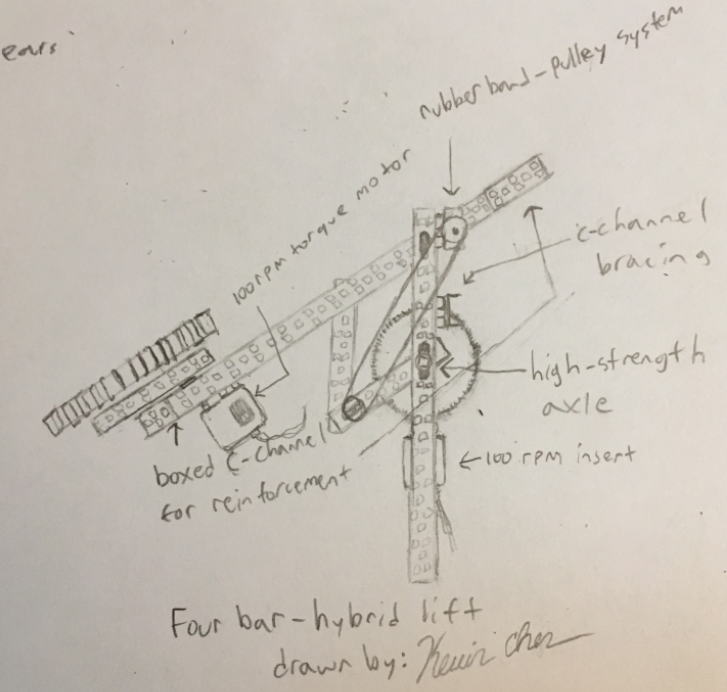 ears
rubber band-pulley system
100 rpm torque motor
c-channel
bracing
high-strength
axle
←100 rpm insert
boxed C-channel
for reinforcement
Four bar-hybrid lift
drawn by: Kevin Chen